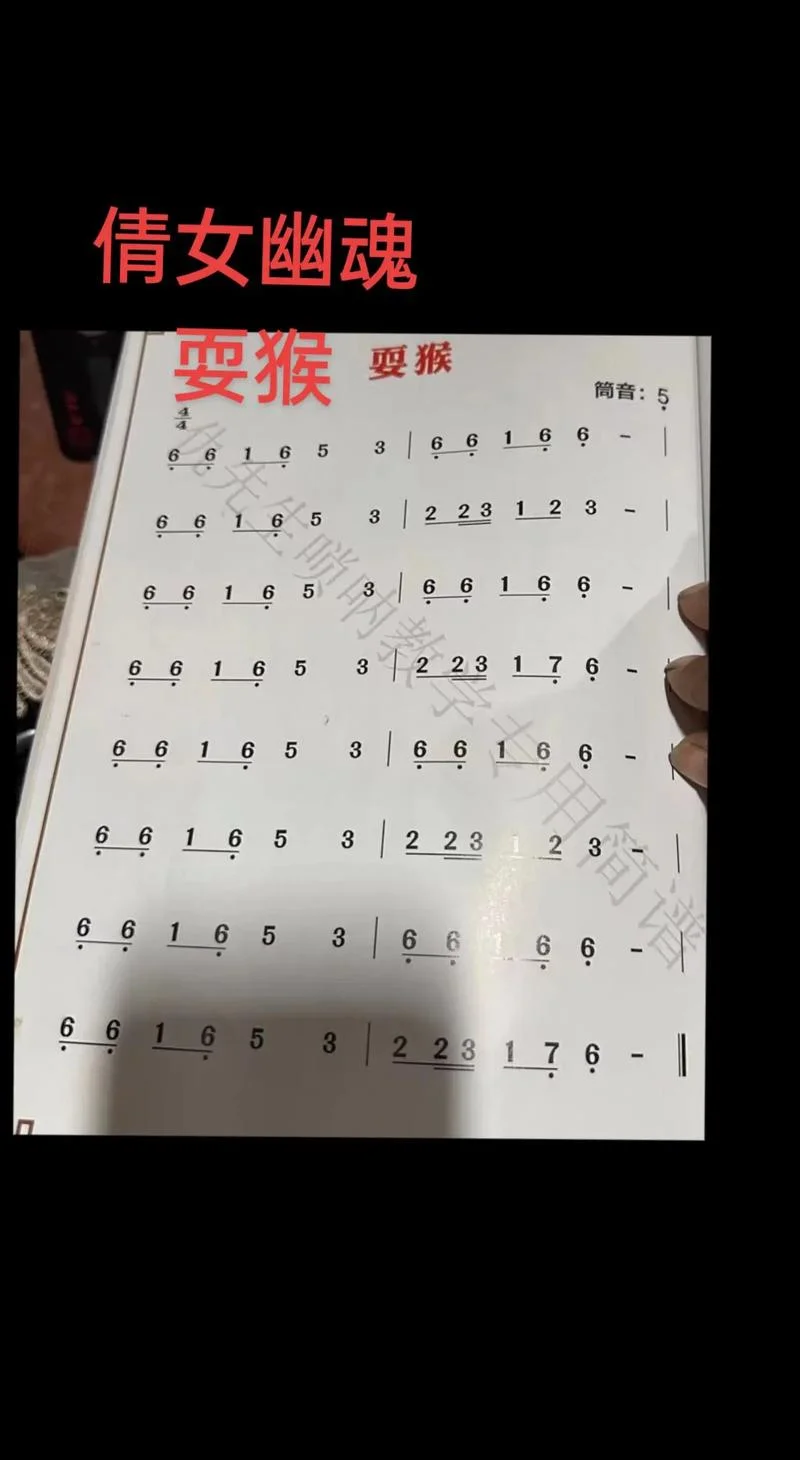 倩女幽魂
耍猴
耍猴
筒音: 5̣
4/4
6̣ 6̣ 1 6̣ 5 3 | 6̣ 6̣ 1 6̣ 6̣ - |
6̣ 6̣ 1 6̣ 5 3 | 2 2 3 1 2 3 - |
6̣ 6̣ 1 6̣ 5 3 | 6̣ 6̣ 1 6̣ 6̣ - |
6̣ 6̣ 1 6̣ 5 3 | 2 2 3 1 7̣ 6̣ - |
6̣ 6̣ 1 6̣ 5 3 | 6̣ 6̣ 1 6̣ 6̣ - |
6̣ 6̣ 1 6̣ 5 3 | 2 2 3 1 2 3 - |
6̣ 6̣ 1 6̣ 5 3 | 6̣ 6̣ 1 6̣ 6̣ - |
6̣ 6̣ 1 6̣ 5 3 | 2 2 3 1 7̣ 6̣ - ‖
仇先生唢呐教学专用简谱